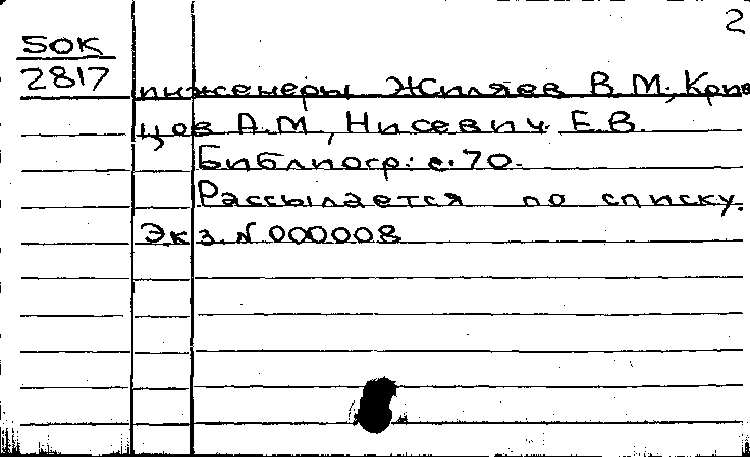 2
50К
2817
инженеры Жиляев В.М., Крив
цов А.М., Нисевич Е.В.
Библиогр.: с. 70.
Рассылается по списку.
Экз. N 000008